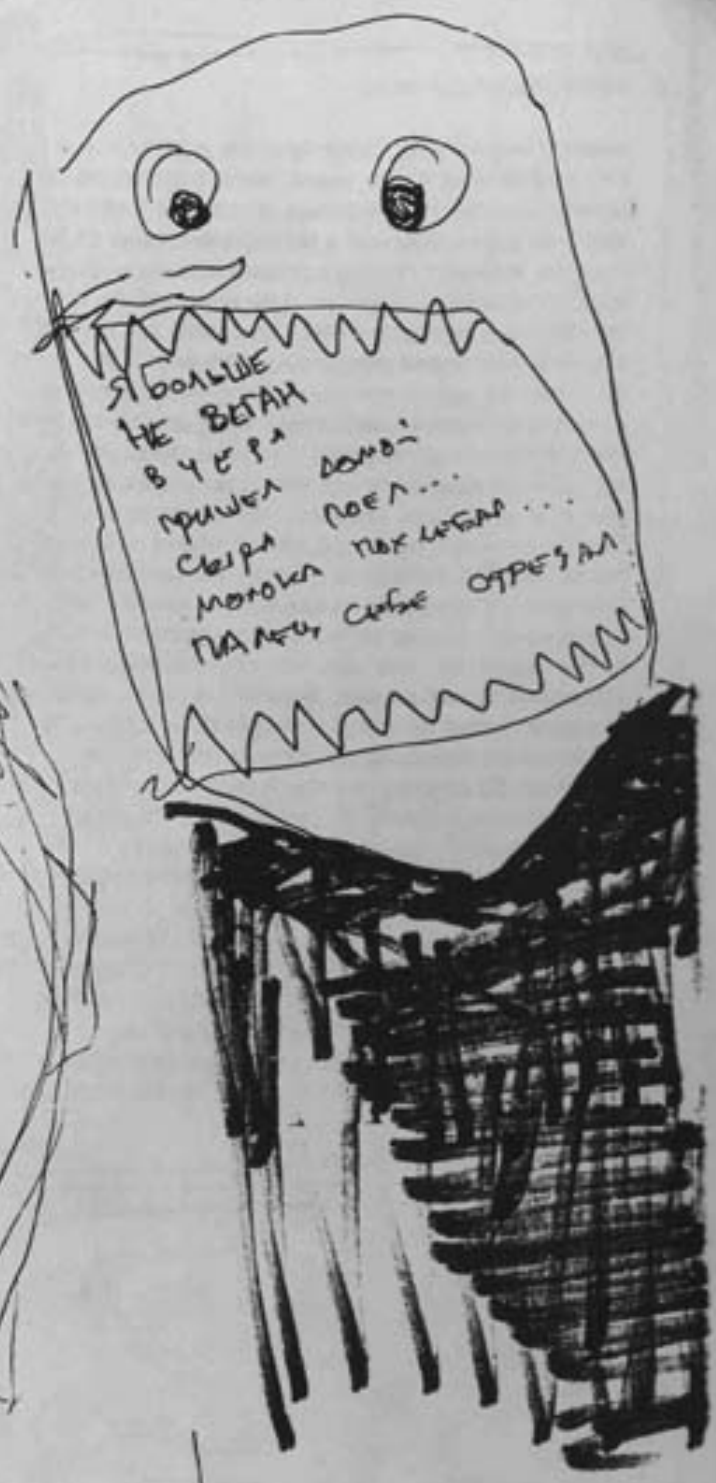 Я БОЛЬШЕ
НЕ ВЕГАН
ВЧЕРА
ПРИШЕЛ ДОМОЙ
СЫРА ПОЕЛ...
МОЛОКА ПОХЛЕБАЛ...
ПАЛЕЦ СЕБЕ ОТРЕЗАЛ